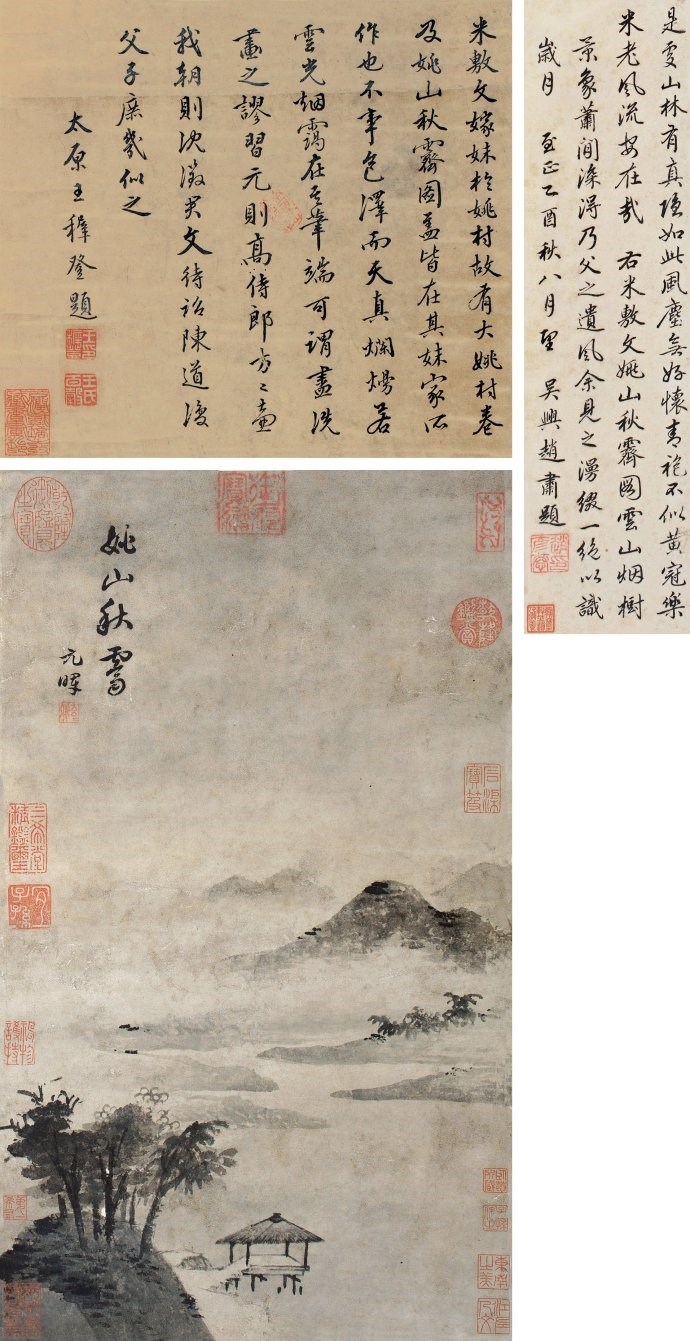 米敷文嫁妹於姚村故有大姚村卷
及姚山秋霽圖蓋皆在其妹家所
作也不事色澤而天真爛熳若
雲光烟靄在毫端可謂盡洗
畫之謬習元則高侍郎方方壺
我朝則沈徵君文待詔陳道復
父子庶幾似之
太原王穉登題
是處山林有真隱如此風塵無好懷青袍不似黃冠樂
米老風流安在哉 右米敷文姚山秋霽圖雲山烟樹
景象蕭閒深得乃父之遺風余見之漫綴一絕以識
歲月 至正乙酉秋八月望 吳興趙肅題
姚山秋霽
元暉